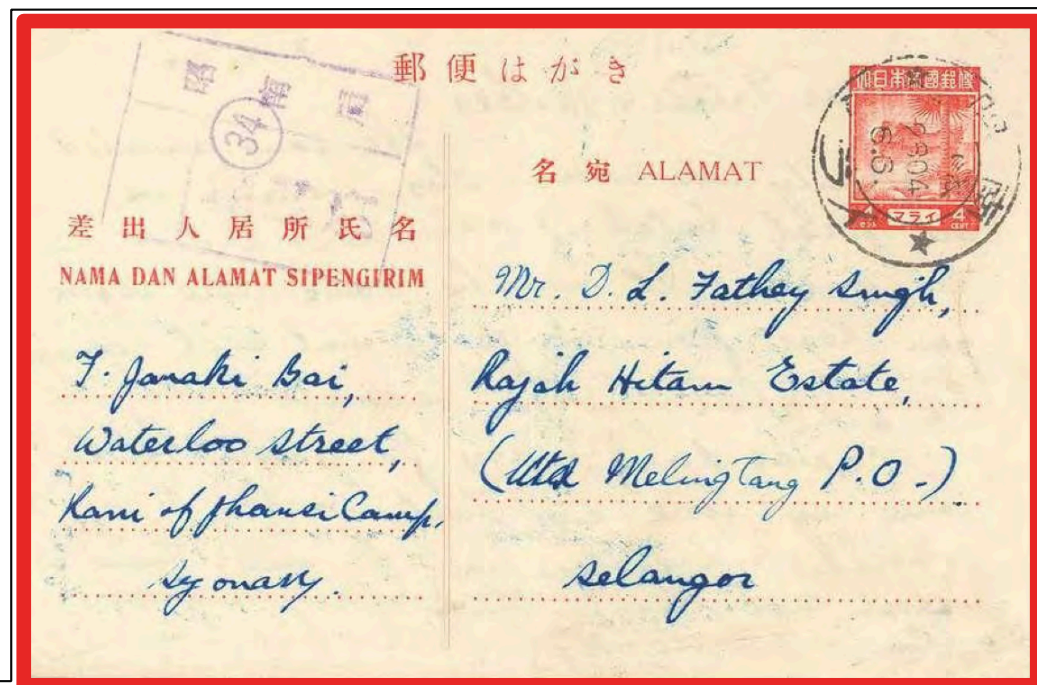 郵便はがき
昭南
34
大日本帝國郵便
マライ
4 セント 4 CENT
2604
6.6
名宛 ALAMAT
差出人居所氏名
NAMA DAN ALAMAT SIPENGIRIM
T. Janaki Bai,
Waterloo Street,
Rani of Jhansi Camp,
Syonan.
Mr. D. L. Fathey Singh,
Rajah Hitam Estate,
(Utd Melingtang P.O.)
Selangor